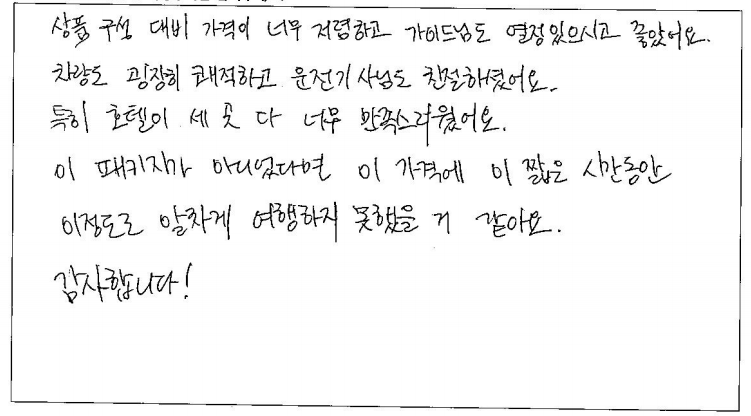 상품 구성 대비 가격이 너무 저렴하고 가이드님도 열정있으시고 좋았어요.
차량도 굉장히 쾌적하고 운전기사님도 친절하셨어요.
특히 호텔이 세 곳 다 너무 만족스러웠어요.
이 패키지가 아니었다면 이 가격에 이 짧은 시간동안
이정도로 알차게 여행하지 못했을 거 같아요.
감사합니다!